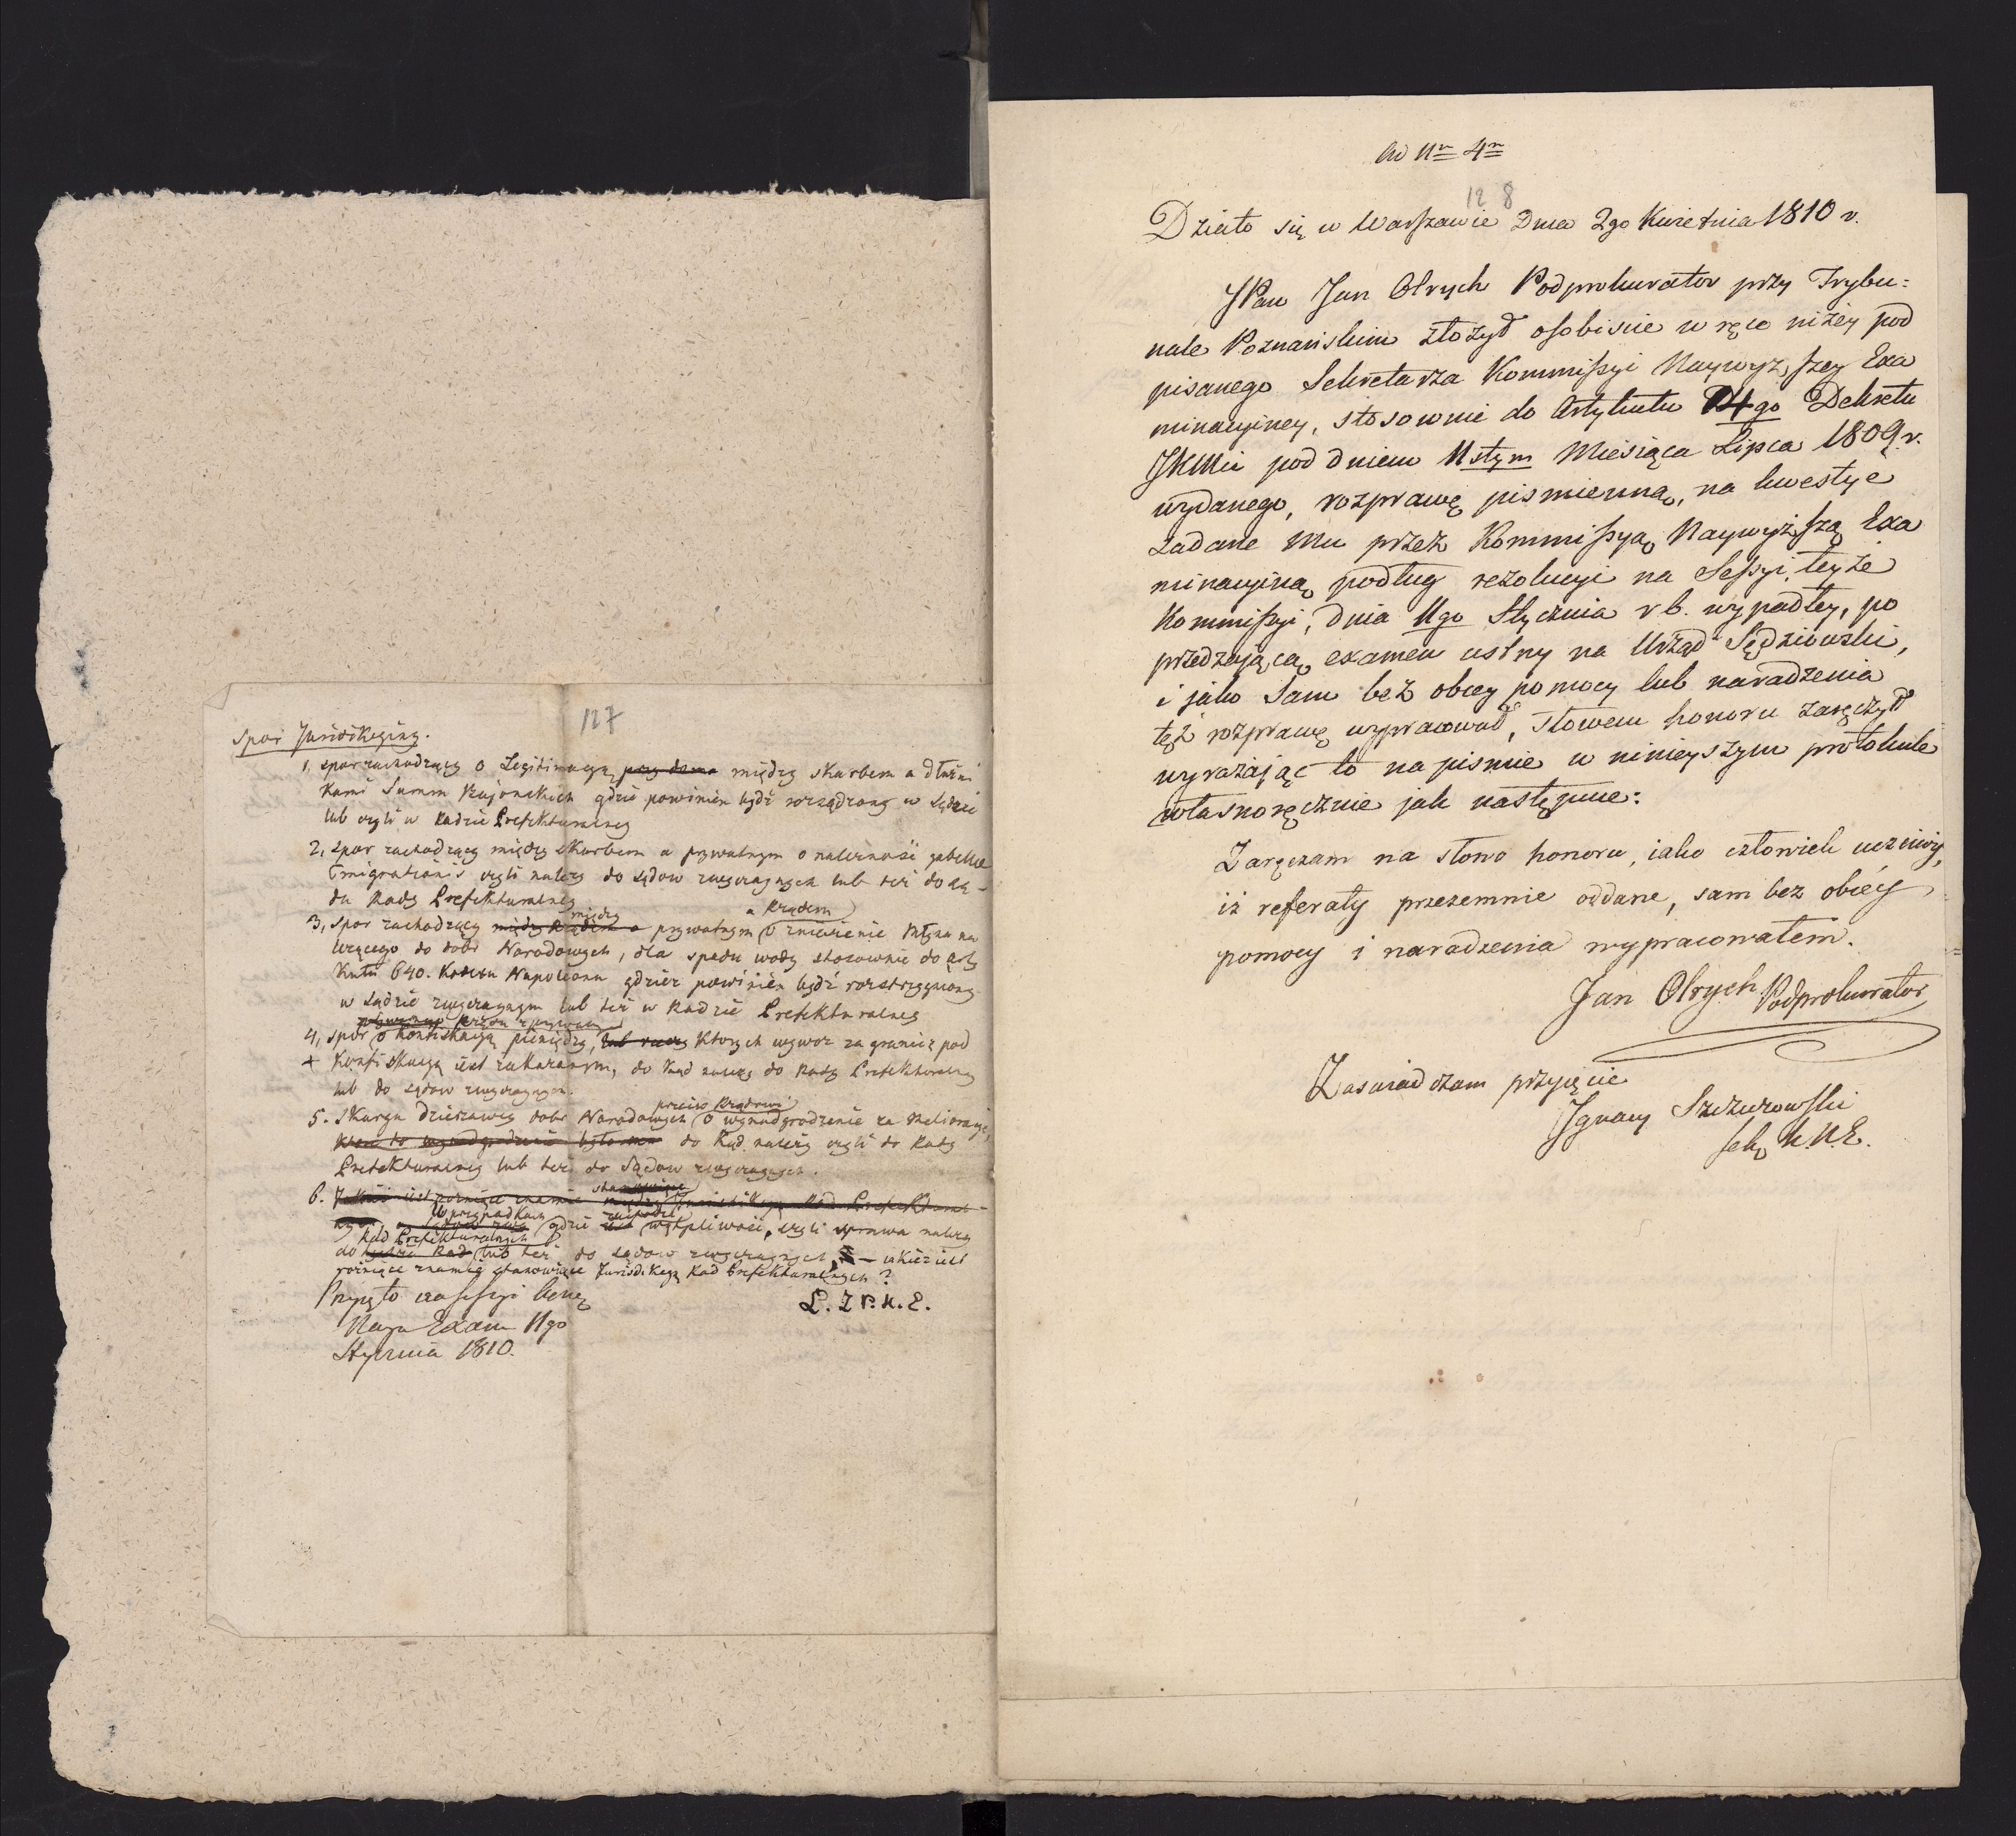 127
Spor Jurisdikcyiny.
1, spor zachodzący o Legitimacyą między skarbem a dłużni
kami Summ Kujonskich gdzie powinien bydź rozsądzony w Sądzie
lub czyli w Radzie Prefekturalney
2, Spor zachodzący między skarbem a prywatnym o należność gabellae
Emigrationis czyli należy do sądow zwyczaynych lub też do są-
du Rady Prefekturalney
między a Rządem
3, Spor zachodzący między Rządem a prywatnym o zniesienie Młyna na
leżącego do dobr Narodowych, dla spadu wody stosownie do arty
kułu 640. Kodexu Napoleona gdzież powinien bydź rozstrzygniony
w Sądzie zwyczaynym lub też w Radzie Prefekturalney
4, spor o konfiskacyą pieniędzy, lub rzeczy ktorych wywoz za granicę pod
+ Konfiskacyą iest zakazanym, do kąd należy do Rady Prefekturalney
lub do sądow zwyczaynych.
przeciw Rządowi
5. Skarga dzierzawcy dobr Narodowych o wynadgrodzenie za Melioracye,
do kąd należy czyli do Rady
Prefekturalney lub też do Sądow zwyczaynych.
stanowiące
6. Jakie iest rożniące znamie Jurisdikcyą Rad Prefektural-
W przypadkach zachodzi
gdzie wątpliwość, czyli sprawa należy
Rad Prefekturalnych
do lub też do sądow zwyczaynych, — iakież iest
rożniące znamie stanowiące Jurisdikcyą Rad Prefekturalnych?
Przyjęto na sessyi
L. Z P. K. E.
Nayw Exam 11go
Stycznia 1810.
Ad Nrm 4m
128
Działo się w Warszawie Dnia 2go Kwietnia 1810 r.
JPan Jan Olrych Podprokurator przy Trybu=
nale Poznańskim złożył osobiście w ręce niżey pod
pisanego Sekretarza Kommissyi Naywyższey Exa
minacyiney, stosownie do Artykułu 14go Dekretu
JKMci pod dniem 11stym Miesiąca Lipca 1809 r.
wydanego, rozprawę pismienną, na kwestye
zadane Mu przez Kommissyą Naywyższą Exa
minacyiną podług rezolucyi na Sessyi teyże
Kommissyi, dnia 11go Stycznia r b. wypadłey, po
przedzającą examen ustny na Urząd Sędziowski,
i jako Sam bez obcey pomocy lub naradzenia
też rozprawę wypracował, słowem honoru zaręczył
wyrażając to na pismie w ninieyszym protokule
własnoręcznie jak następuie:
Zaręczam na słowo honoru, iako człowiek uczciwy,
iż referaty przezemnie oddane, sam bez obcéy
pomocy i naradzenia wypracowałem.
Jan Olrych Podprokurator
Zaswiadczam przyjęcie
Ignacy Szczurowski
Sek. K.N.E.